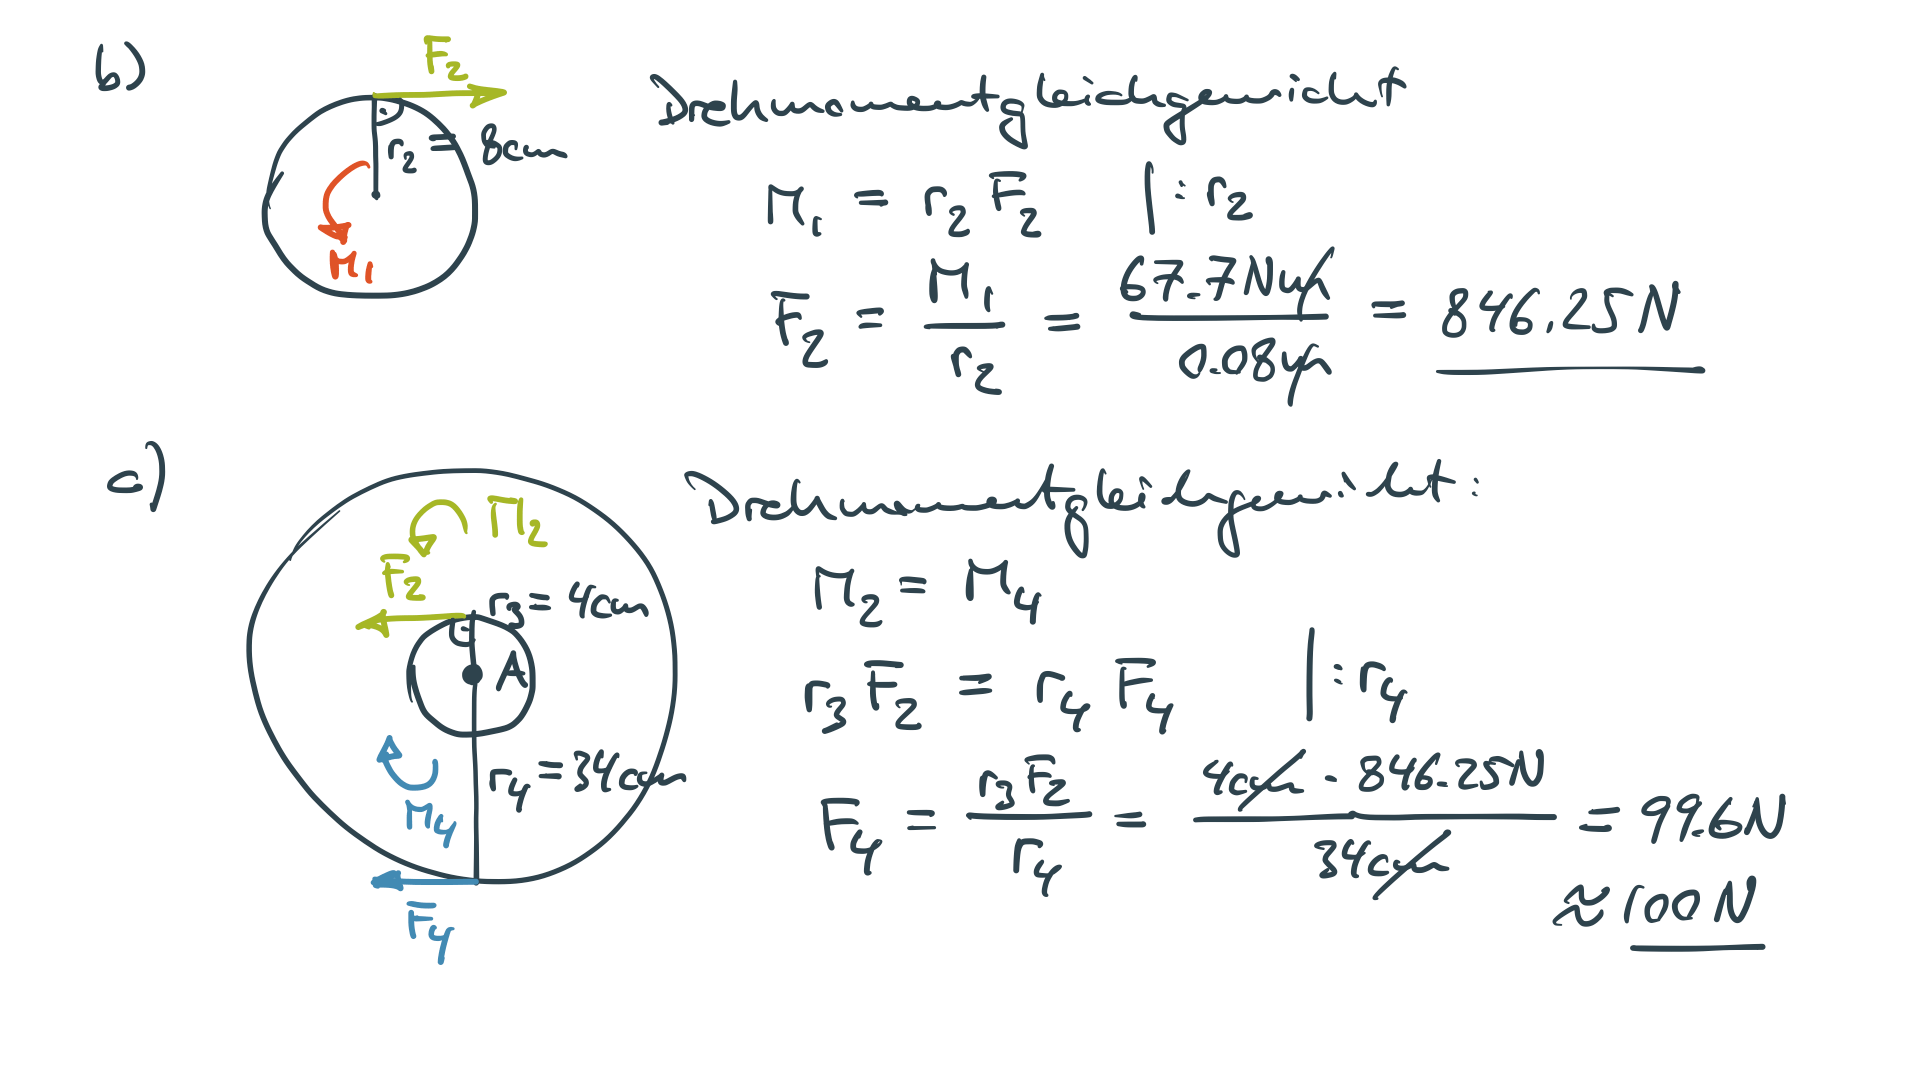 b)
F₂
r₂ = 8cm
M₁
Drehmomentgleichgewicht
M₁ = r₂ F₂ | : r₂
F₂ = M₁ / r₂ = 67.7Nm / 0.08m = 846.25N
c)
M₂
F₂
r₃ = 4cm
A
r₄ = 34cm
M₄
F₄
Drehmomentgleichgewicht:
M₂ = M₄
r₃ F₂ = r₄ F₄ | : r₄
F₄ = r₃ F₂ / r₄ = 4cm · 846.25N / 34cm = 99.6N
≈ 100N